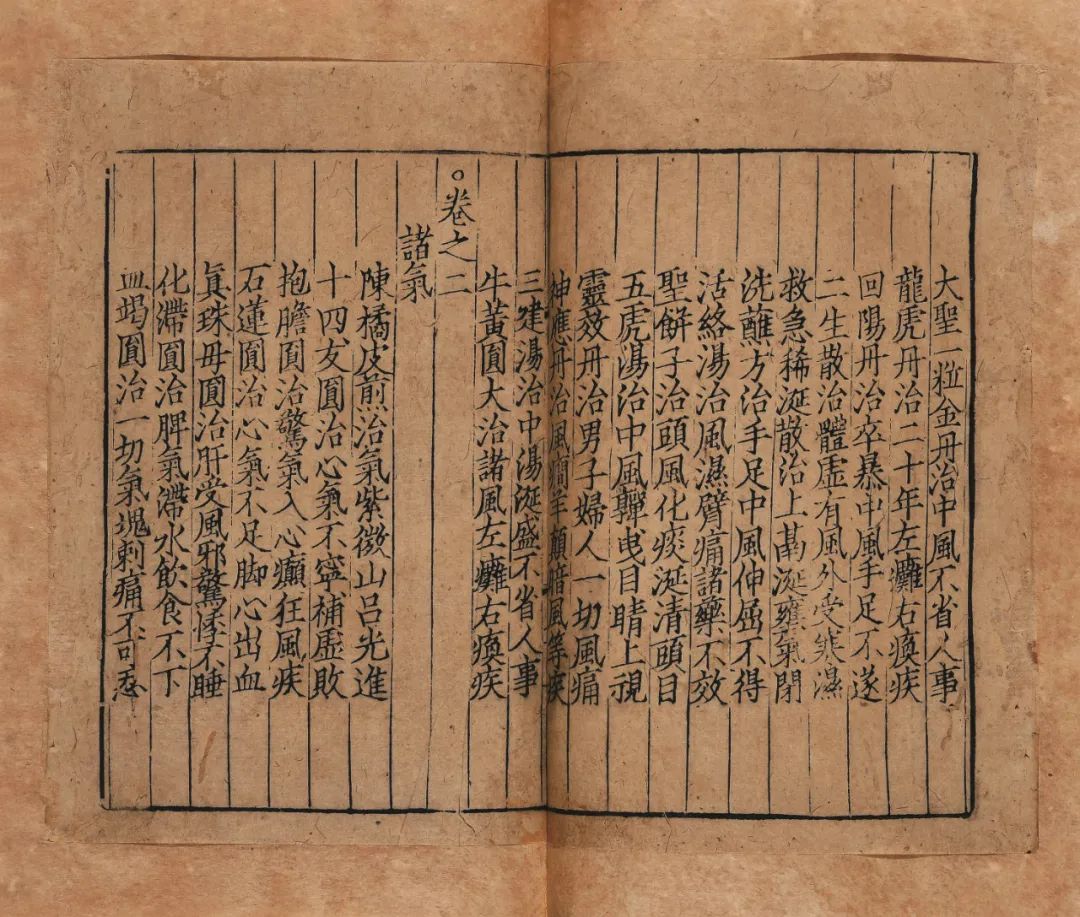 大聖一粒金丹治中風不省人事
龍虎丹治二十年左癱右瘓疾
回陽丹治卒暴中風手足不遂
二生散治體虛有風外受寒濕
救急稀涎散治上鬲涎壅氣閉
洗蘸方治手足中風伸屈不得
活絡湯治風濕臂痛諸藥不效
聖餅子治頭風化痰涎清頭目
五虎湯治中風嚲曳目睛上視
靈效丹治男子婦人一切風痛
神應丹治風癇羊顛暗風等疾
三建湯治中湯涎盛不省人事
牛黃圓大治諸風左癱右瘓疾
。卷之二
諸氣
陳橘皮煎治氣紫微山呂光進
十四友圓治心氣不寧補虛敗
抱膽圓治驚氣入心癲狂風疾
石蓮圓治心氣不足脚心出血
眞珠母圓治肝受風邪驚悸不睡
化滯圓治脾氣滯水飲食不下
血竭圓治一切氣塊刺痛不可忍